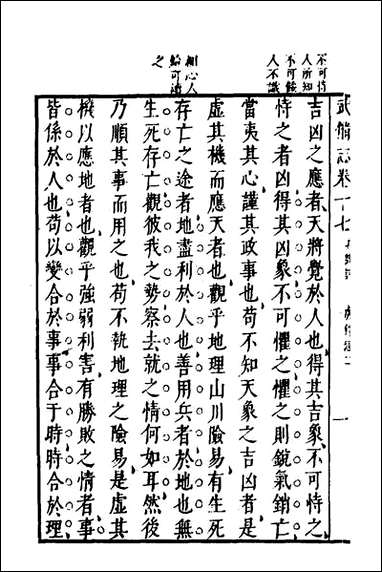 武備志卷十七
不可恃
人所知
不可懼
人不識
心人
可
之
吉凶之應者天將覺於人也得其吉象不可恃之
恃之者凶得其凶象不可懼之懼之則銳氣銷亡
當夷其心謹其政事也苟不知天象之吉凶者是
虛其機而應天者也觀乎地理山川險易有生死
存亡之途者地盡利於人也善用兵者於地也無
生死存亡觀彼我之勢察去就之情何如耳然後
乃順其事而用之也苟不執地理之險易是虛其
機以應地者也觀乎強弱利害有勝敗之情者事
皆係於人也苟以變合於事事合于時時合於理